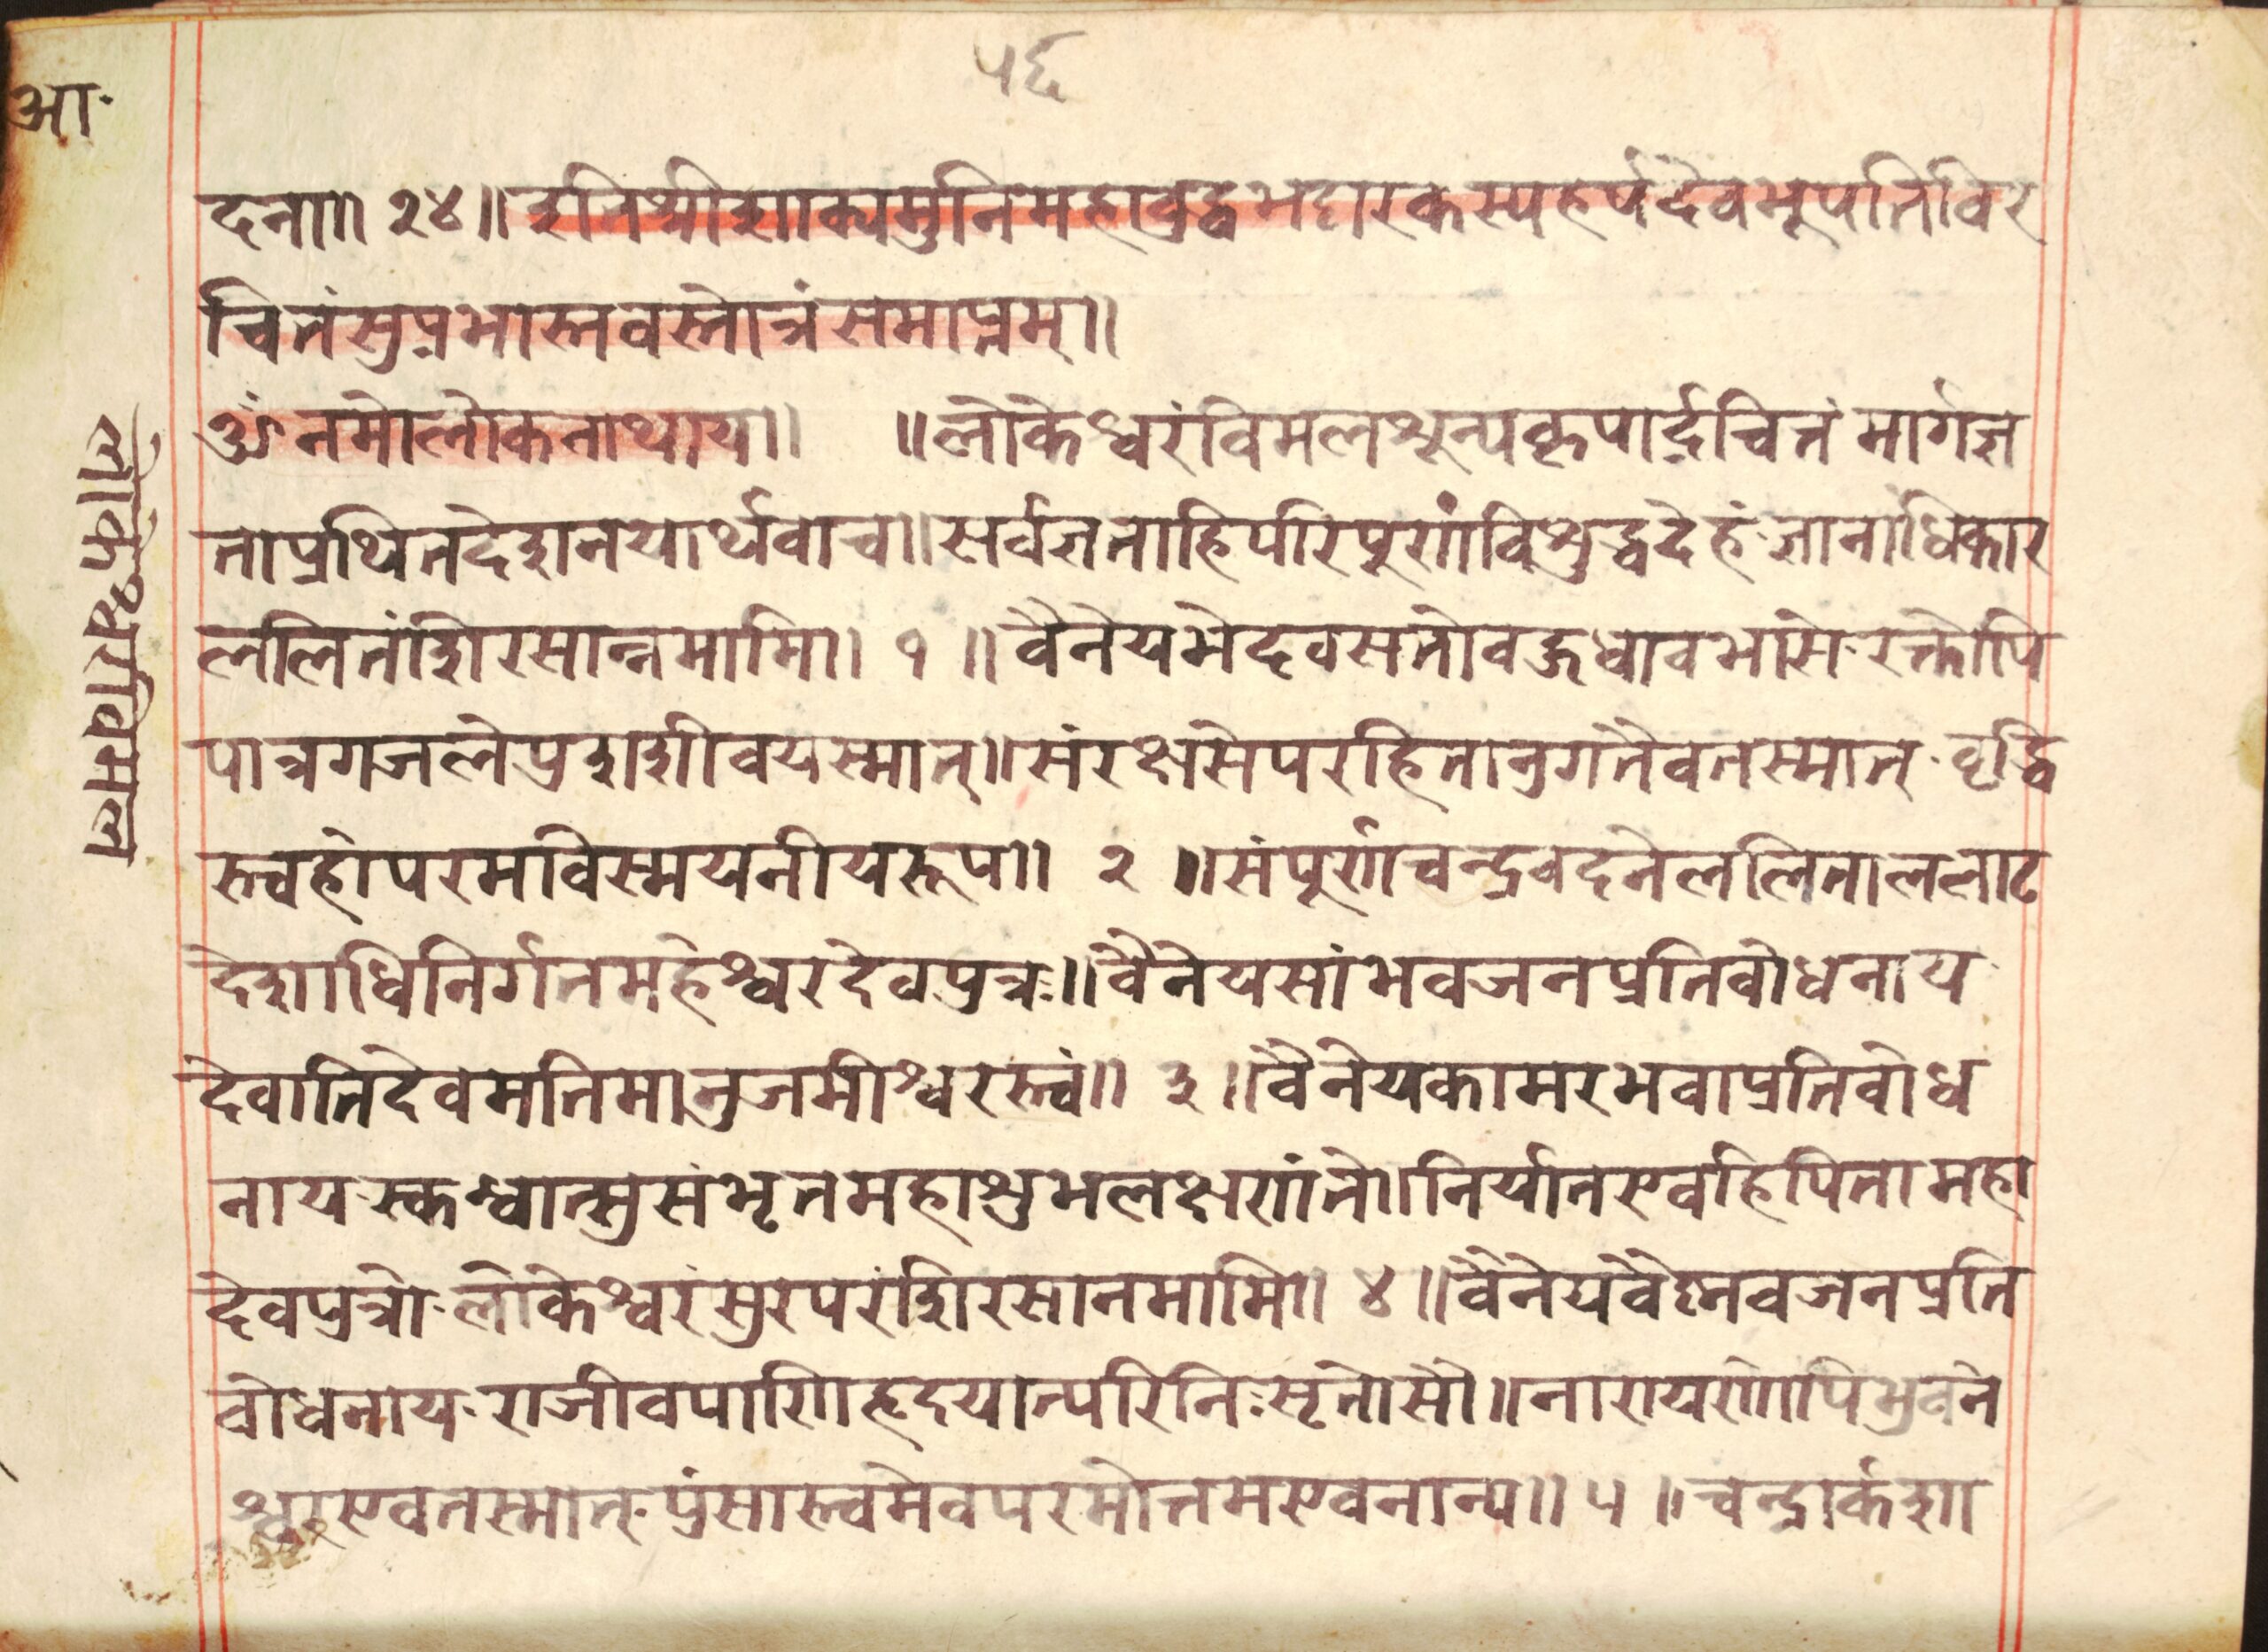 ५६
आ॰
दना॥ २४॥ इतिश्रीशाक्यमुनिमहाबुद्धभट्टारकस्यहर्षदेवभूपतिविर
चितंसुप्रभास्तवस्तोत्रंसमाप्तम्॥
ॐनमोलोकनाथाय॥ ॥लोकेश्वरंविमलशून्यकृपार्द्रचित्तं मार्गज्ञ
ताप्रथितदेशनयार्थवाच॥सर्वज्ञताहिपरिपूर्णविशुद्धदेहं॰ज्ञानाधिकार
ललितंशिरसान्नमामि॥ १ ॥ वैनेयभेदवसतोवहुधावभासे॰रक्तोपि
पात्रगजलेप्रशशीवयस्मात्॥संरक्षसेपरहितानुगतैवतस्मात्॰वृद्धि
स्त्वहोपरमविस्मयनीयरूप॥ २ ॥संपूर्णचन्द्रवदनेललिताललाट
देशाधिनिर्गतमहेश्वरदेवपुत्रः॥वैनेयसांभवजनप्रतिवोधनाय
देवातिदेवमतिमानुजमीश्वरस्त्वं॥ ३ ॥वैनेयकामरभवाप्रतिवोध
नाय॰स्कन्धात्सुसंभृतमहाशुभलक्षणंते॥निर्यातएवहिपितामहा
देवपुत्रो॰लोकेश्वरंसुरपरंशिरसानमामि॥ ४ ॥वैनेयवैष्नवजनप्रति
वोधनाय॰राजीवपाणिहृदयात्परिनिःसृतोसौ॥नारायणोपिभुवने
श्वरएवतस्मात्॰पुंसास्त्वमेवपरमोत्तमएवनान्य॥ ५ ॥ चन्द्रार्कशा
लोकेश्वरंविमल